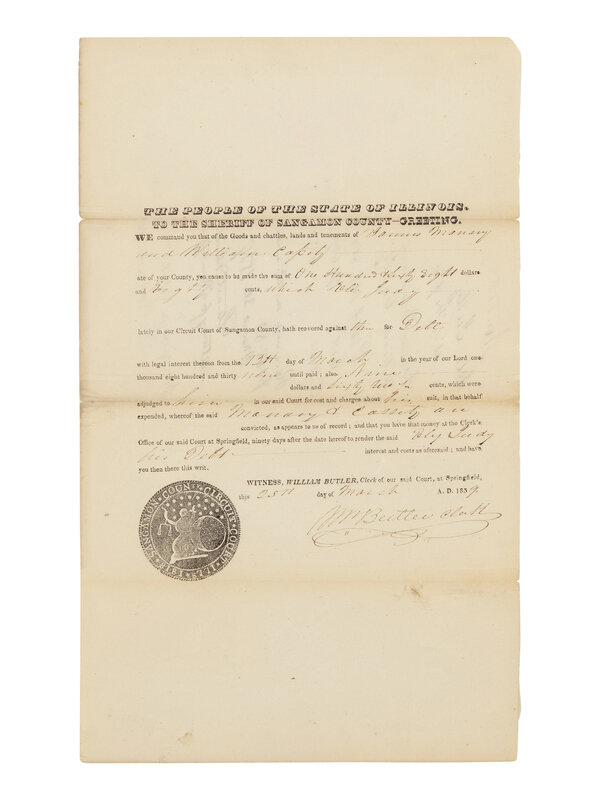 THE PEOPLE OF THE STATE OF ILLINOIS.
TO THE SHERIFF OF SANGAMON COUNTY—GREETING.
WE command you that of the Goods and chattles, lands and tenements of
and William Cassity
ate of your County, you cause to be made the sum of One Hundred Sixty Eight dollars
and Eighty cents, which Judy
lately in our Circuit Court of Sangamon County, hath recovered against for Debt
with legal interest thereon from the 12th day of March in the year of our Lord one
thousand eight hundred and thirty nine until paid; also Nine
dollars and cents, which were
adjudged to him in our said Court for cost and charges about his suit, in that behalf
expended, whereof the said & Cassity are
convicted, as appears to us of record; and that you have that money at the Clerk's
Office of our said Court at Springfield, ninety days after the date hereof to render the said Judy
his Debt interest and costs as aforesaid; and have
you then there this writ.
WITNESS, WILLIAM BUTLER, Clerk of our said Court, at Springfield,
this 25th day of March A. D. 1839.
Wm Butler Clerk
SANGAMON COUN. CIRCUIT COURT ILI.